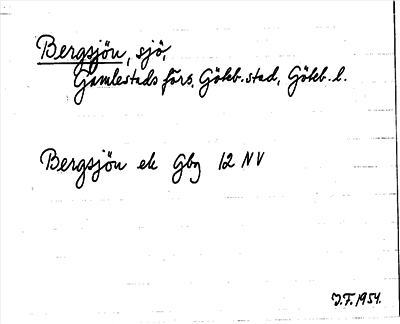 Bergsjön, sjö,
Gamlestads förs. Göteb. stad, Göteb. l.
Bergsjön ek Gbg 12 NV
J.F. 1954.